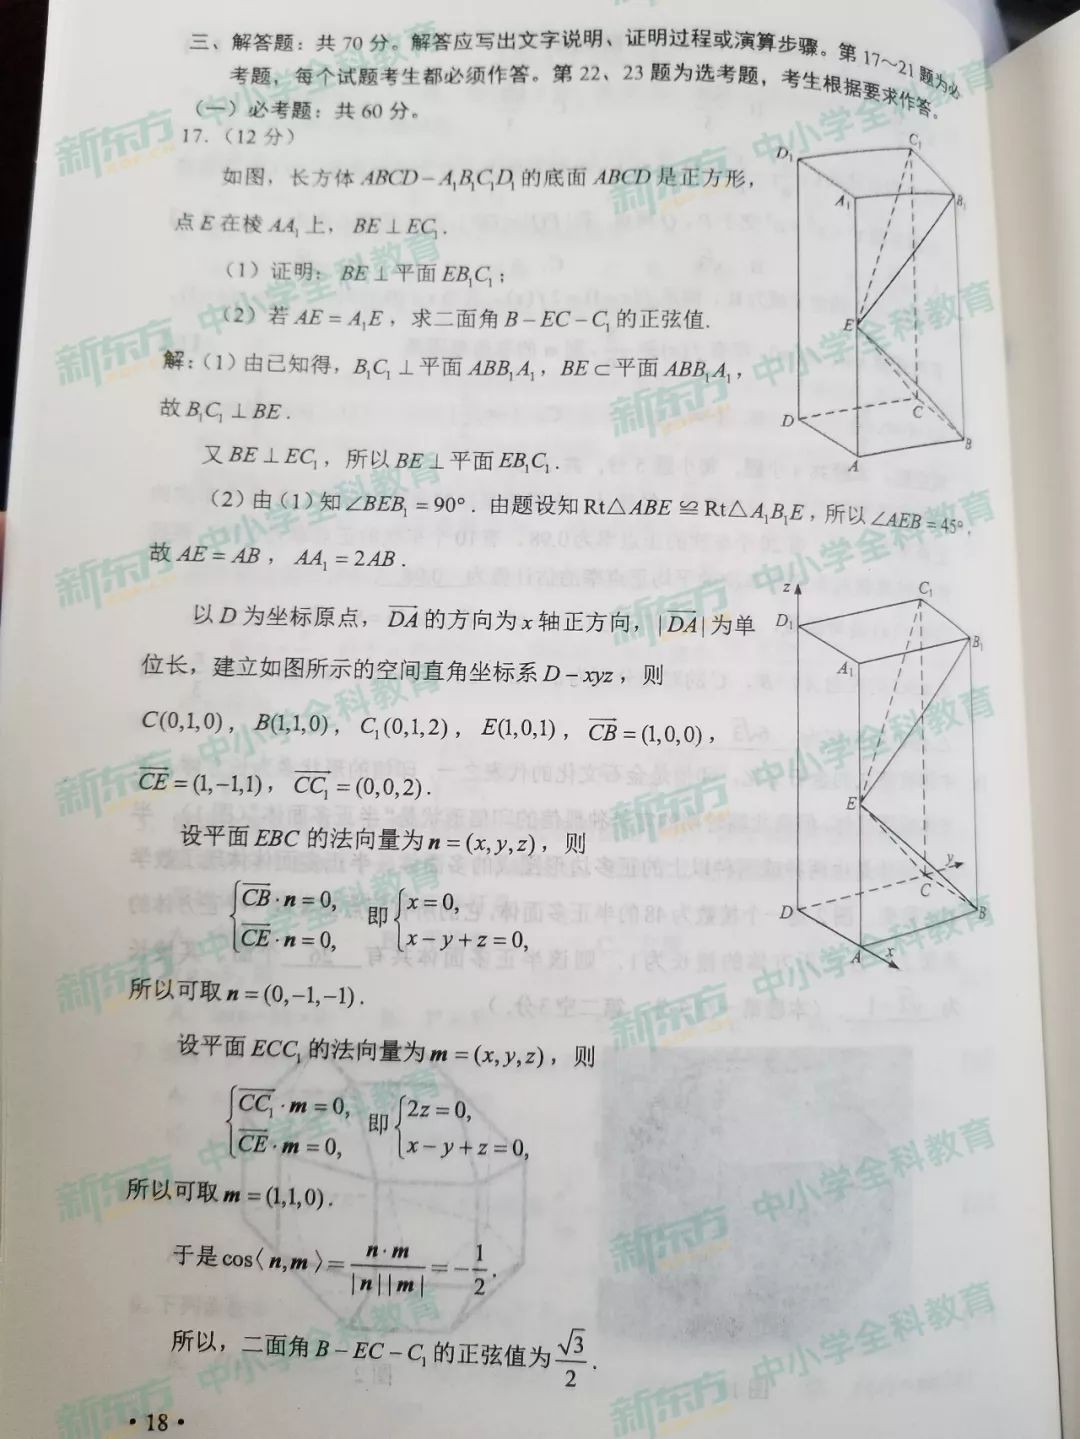 三、解答题：共 70 分。解答应写出文字说明、证明过程或演算步骤。第 17～21 题为必
考题，每个试题考生都必须作答。第 22、23 题为选考题，考生根据要求作答。
（一）必考题：共 60 分。
17.（12 分）
如图，长方体 ABCD－A₁B₁C₁D₁ 的底面 ABCD 是正方形，
点 E 在棱 AA₁ 上，BE⊥EC₁.
（1）证明：BE⊥平面 EB₁C₁；
（2）若 AE = A₁E，求二面角 B－EC－C₁ 的正弦值.
解：（1）由已知得，B₁C₁⊥平面 ABB₁A₁，BE⊂平面 ABB₁A₁，
故 B₁C₁⊥BE.
又 BE⊥EC₁，所以 BE⊥平面 EB₁C₁.
（2）由（1）知 ∠BEB₁ = 90°. 由题设知 Rt△ABE ≌ Rt△A₁B₁E，所以 ∠AEB = 45°，
故 AE = AB，AA₁ = 2AB.
以 D 为坐标原点，DA 的方向为 x 轴正方向，|DA| 为单
位长，建立如图所示的空间直角坐标系 D－xyz，则
C(0,1,0)，B(1,1,0)，C₁(0,1,2)，E(1,0,1)，CB = (1,0,0)，
CE = (1,−1,1)，CC₁ = (0,0,2).
设平面 EBC 的法向量为 n = (x,y,z)，则
{CB·n = 0, 即 {x = 0,
CE·n = 0, x − y + z = 0,
所以可取 n = (0,−1,−1).
设平面 ECC₁ 的法向量为 m = (x,y,z)，则
{CC₁·m = 0, 即 {2z = 0,
CE·m = 0, x − y + z = 0,
所以可取 m = (1,1,0).
于是 cos⟨n,m⟩ = n·m / |n||m| = −1/2.
所以，二面角 B－EC－C₁ 的正弦值为 √3/2.
·18·
D₁
C₁
A₁
B₁
E
D
C
A
B
z
C₁
D₁
B₁
A₁
E
y
C
D
B
A
x
新东方
XDF.CN
中小学全科教育